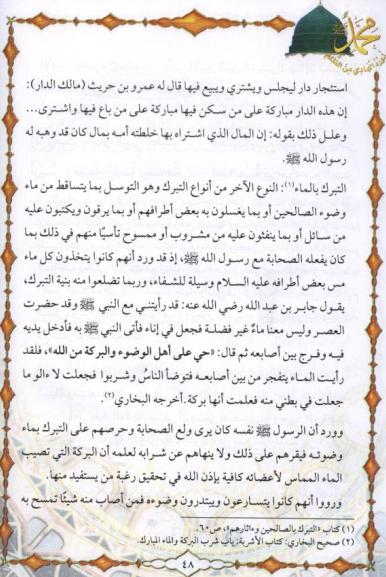 محمد ﷺ
استئجار دار ليجلس ويشتري ويبيع فيها قال له عمرو بن حريث (مالك الدار):
إن هذه الدار مباركة على من سكن فيها مباركة على من باع فيها واشترى...
وعلل ذلك بقوله: إن المال الذي اشتراه بها خلطته أمه بمال كان قد وهبه له
رسول الله ﷺ.
التبرك بالماء(١): النوع الآخر من أنواع التبرك وهو التوسل بما يتساقط من ماء
وضوء الصالحين أو بما يغسلون به بعض أطرافهم أو بما يرقون ويكتبون عليه
من سائل أو بما ينفثون عليه من مشروب أو ممسوح تأسيًا منهم في ذلك بما
كان يفعله الصحابة مع رسول الله ﷺ، إذ قد ورد أنهم كانوا يتخذون كل ماء
مس بعض أطرافه عليه السلام وسيلة للشفاء، وربما تضلعوا منه بنية التبرك،
يقول جابر بن عبد الله رضي الله عنه: قد رأيتني مع النبي ﷺ وقد حضرت
العصر وليس معنا ماءٌ غير فضلة فجعل في إناء فأتى النبي ﷺ به فأدخل يديه
فيه وفرج بين أصابعه ثم قال: «حي على أهل الوضوء والبركة من الله»، فلقد
رأيت الماء يتفجر من بين أصابعه فتوضأ الناسُ وشربوا فجعلت لا ءالو ما
جعلت في بطني منه فعلمت أنها بركة. أخرجه البخاري(٢).
وورد أن الرسول ﷺ نفسه كان يرى ولع الصحابة وحرصهم على التبرك بماء
وضوئه فيقرهم على ذلك ولا ينهاهم عن شرابه لعلمه أن البركة التي تصيب
الماء المماس لأعضائه كافية بإذن الله في تحقيق رغبة من يستفيد منها.
ورووا أنهم كانوا يتسارعون ويبتدرون وضوءه فمن أصاب منه شيئًا تمسح به
(١) كتاب «التبرك بالصالحين وءاثارهم»، ص٦٠.
(٢) صحيح البخاري: كتاب الأشربة: باب شرب البركة والماء المبارك.
٤٨